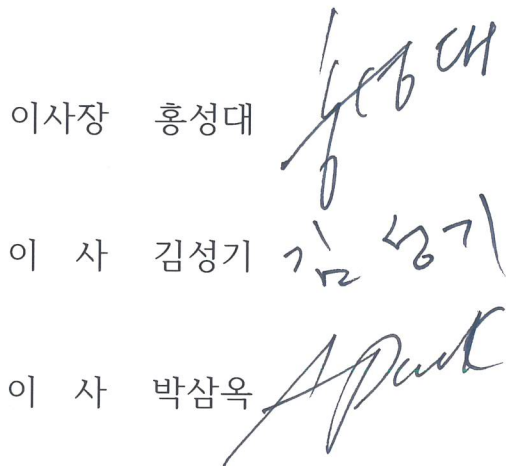 이사장 홍성대 홍성대
이 사 김성기 김성기
이 사 박삼옥 APark